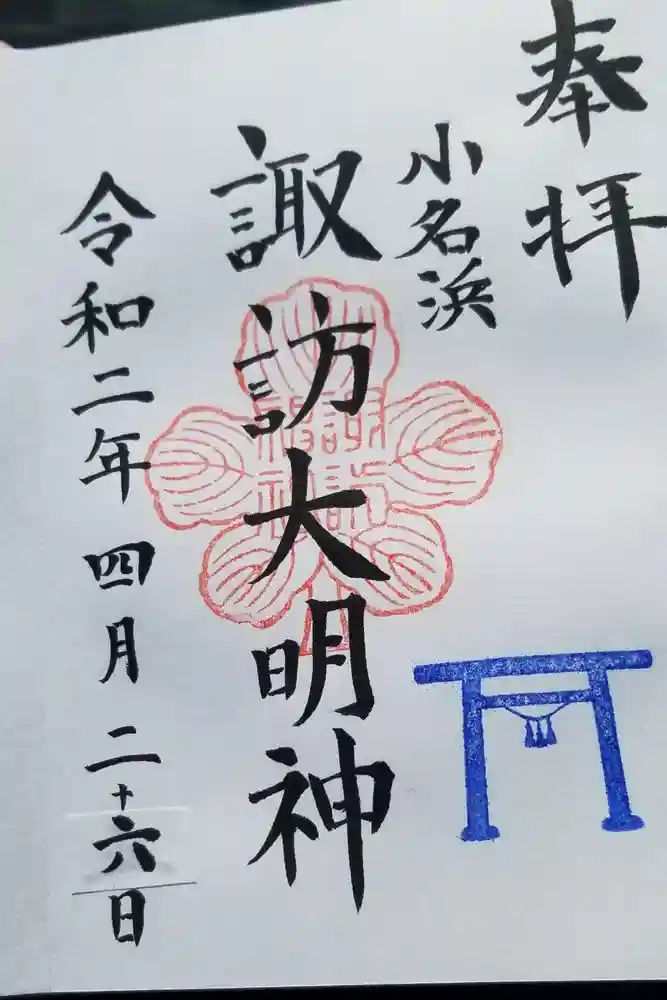 奉拝
小名浜
諏訪大明神
令和二年四月二十六日